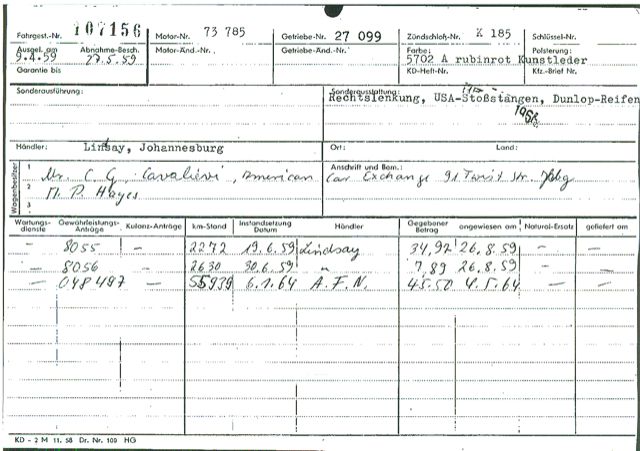 Fahrgest.-Nr. 107156 Motor-Nr. 73 785 Getriebe-Nr. 27 099 Zündschloß-Nr. K 185 Schlüssel-Nr.
Ausgel. am Abnahme-Besch. Motor-Änd.-Nr. Getriebe-Änd.-Nr. Farbe: Polsterung:
9.4.59 27.5.59 5702 A rubinrot Kunstleder
Garantie bis KD-Heft-Nr. Kfz.-Brief Nr.
Sonderausführung: Sonderausstattung:
Rechtslenkung, USA-Stoßstangen, Dunlop-Reifen
Händler: Lindsay, Johannesburg Ort: Land:
Wagenbesitzer Anschrift und Bem.:
1 Mr. C. G. Cavalieri, American Car Exchange 91 Twist Str. Jhbg
2 M. P. Hayes
3
Wartungs-dienste Gewährleistungs-Anträge Kulanz-Anträge km-Stand Instandsetzung Datum Händler Gegebener Betrag angewiesen am Natural-Ersatz geliefert am
— 8055 — 2272 19.6.59 Lindsay 34,92 26.8.59 — —
— 8056 2630 30.6.59 " 7,89 26.8.59 — —
— 048497 — 55939 6.1.64 A.F.N. 45.50 4.5.64 — —
KD - 2 M 11. 58 Dr. Nr. 109 HG